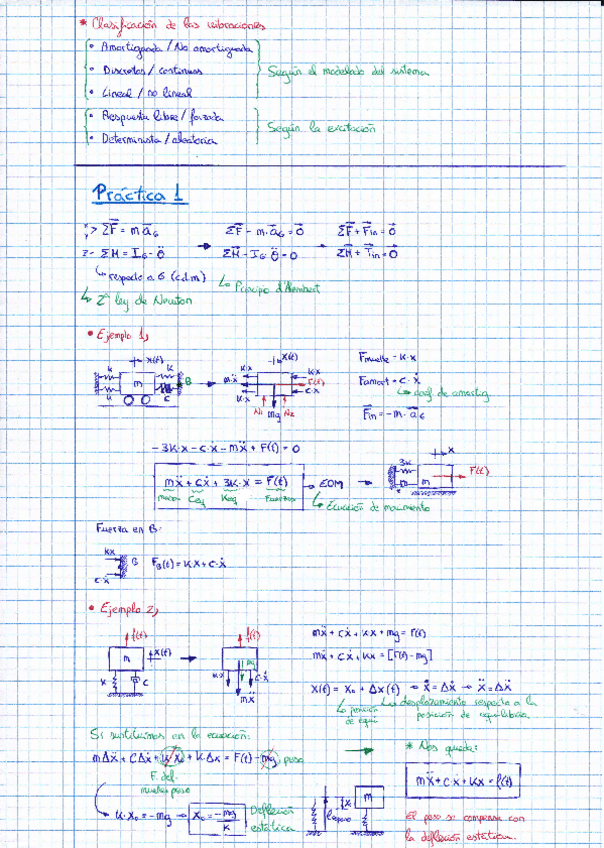 * Clasificación de las vibraciones
• Amortiguada / No amortiguada
• Discretas / continuas
Según el modelado del sistema
• Lineal / no lineal
• Respuesta libre / forzada
Según la excitación
• Determinista / aleatoria
Práctica 1
ΣF = m·a_G → ΣF - m·a_G = 0 → ΣF + F_in = 0
ΣM = I_G·θ̈ ΣM - I_G·θ̈ = 0 ΣM + T_in = 0
respecto a G (c.d.m)
Principio d'Alembert
2ª ley de Newton
• Ejemplo 1)
x(t) x(t)
k k B m k c
m·ẍ k·x k·x k·x F(t) c·ẋ
N1 mg N2
Fmuelle = k·x
Famort = c·ẋ
coef. de amortig.
F_in = -m·a_G
-3k·x - c·ẋ - mẍ + F(t) = 0
mẍ + cẋ + 3k·x = F(t) → EOM
masa Ceq Keq
Ecuación de movimiento
3k m x F(t)
Fuerza en B:
kx
B F_B(t) = kx + c·ẋ
c·ẋ
• Ejemplo 2)
f(t) f(t)
m x(t) k c
kx mg c·ẋ
mẍ
mẍ + cẋ + kx + mg = F(t)
mẍ + cẋ + kx = [F(t) - mg]
x(t) = x₀ + Δx(t) → ẋ = Δẋ → ẍ = Δẍ
posición de equi
desplazamiento respecto a la posición de equilibrio.
Si sustituimos en la ecuación:
mΔẍ + cΔẋ + k·x₀ + k·Δx = F(t) - mg peso
F. del muelle peso
k·x₀ = -mg → x₀ = -mg/k
Deflexión estática
* Nos queda:
mẍ + c·ẋ + kx = f(t)
x m
El peso se compensa con
la deflexión estática.